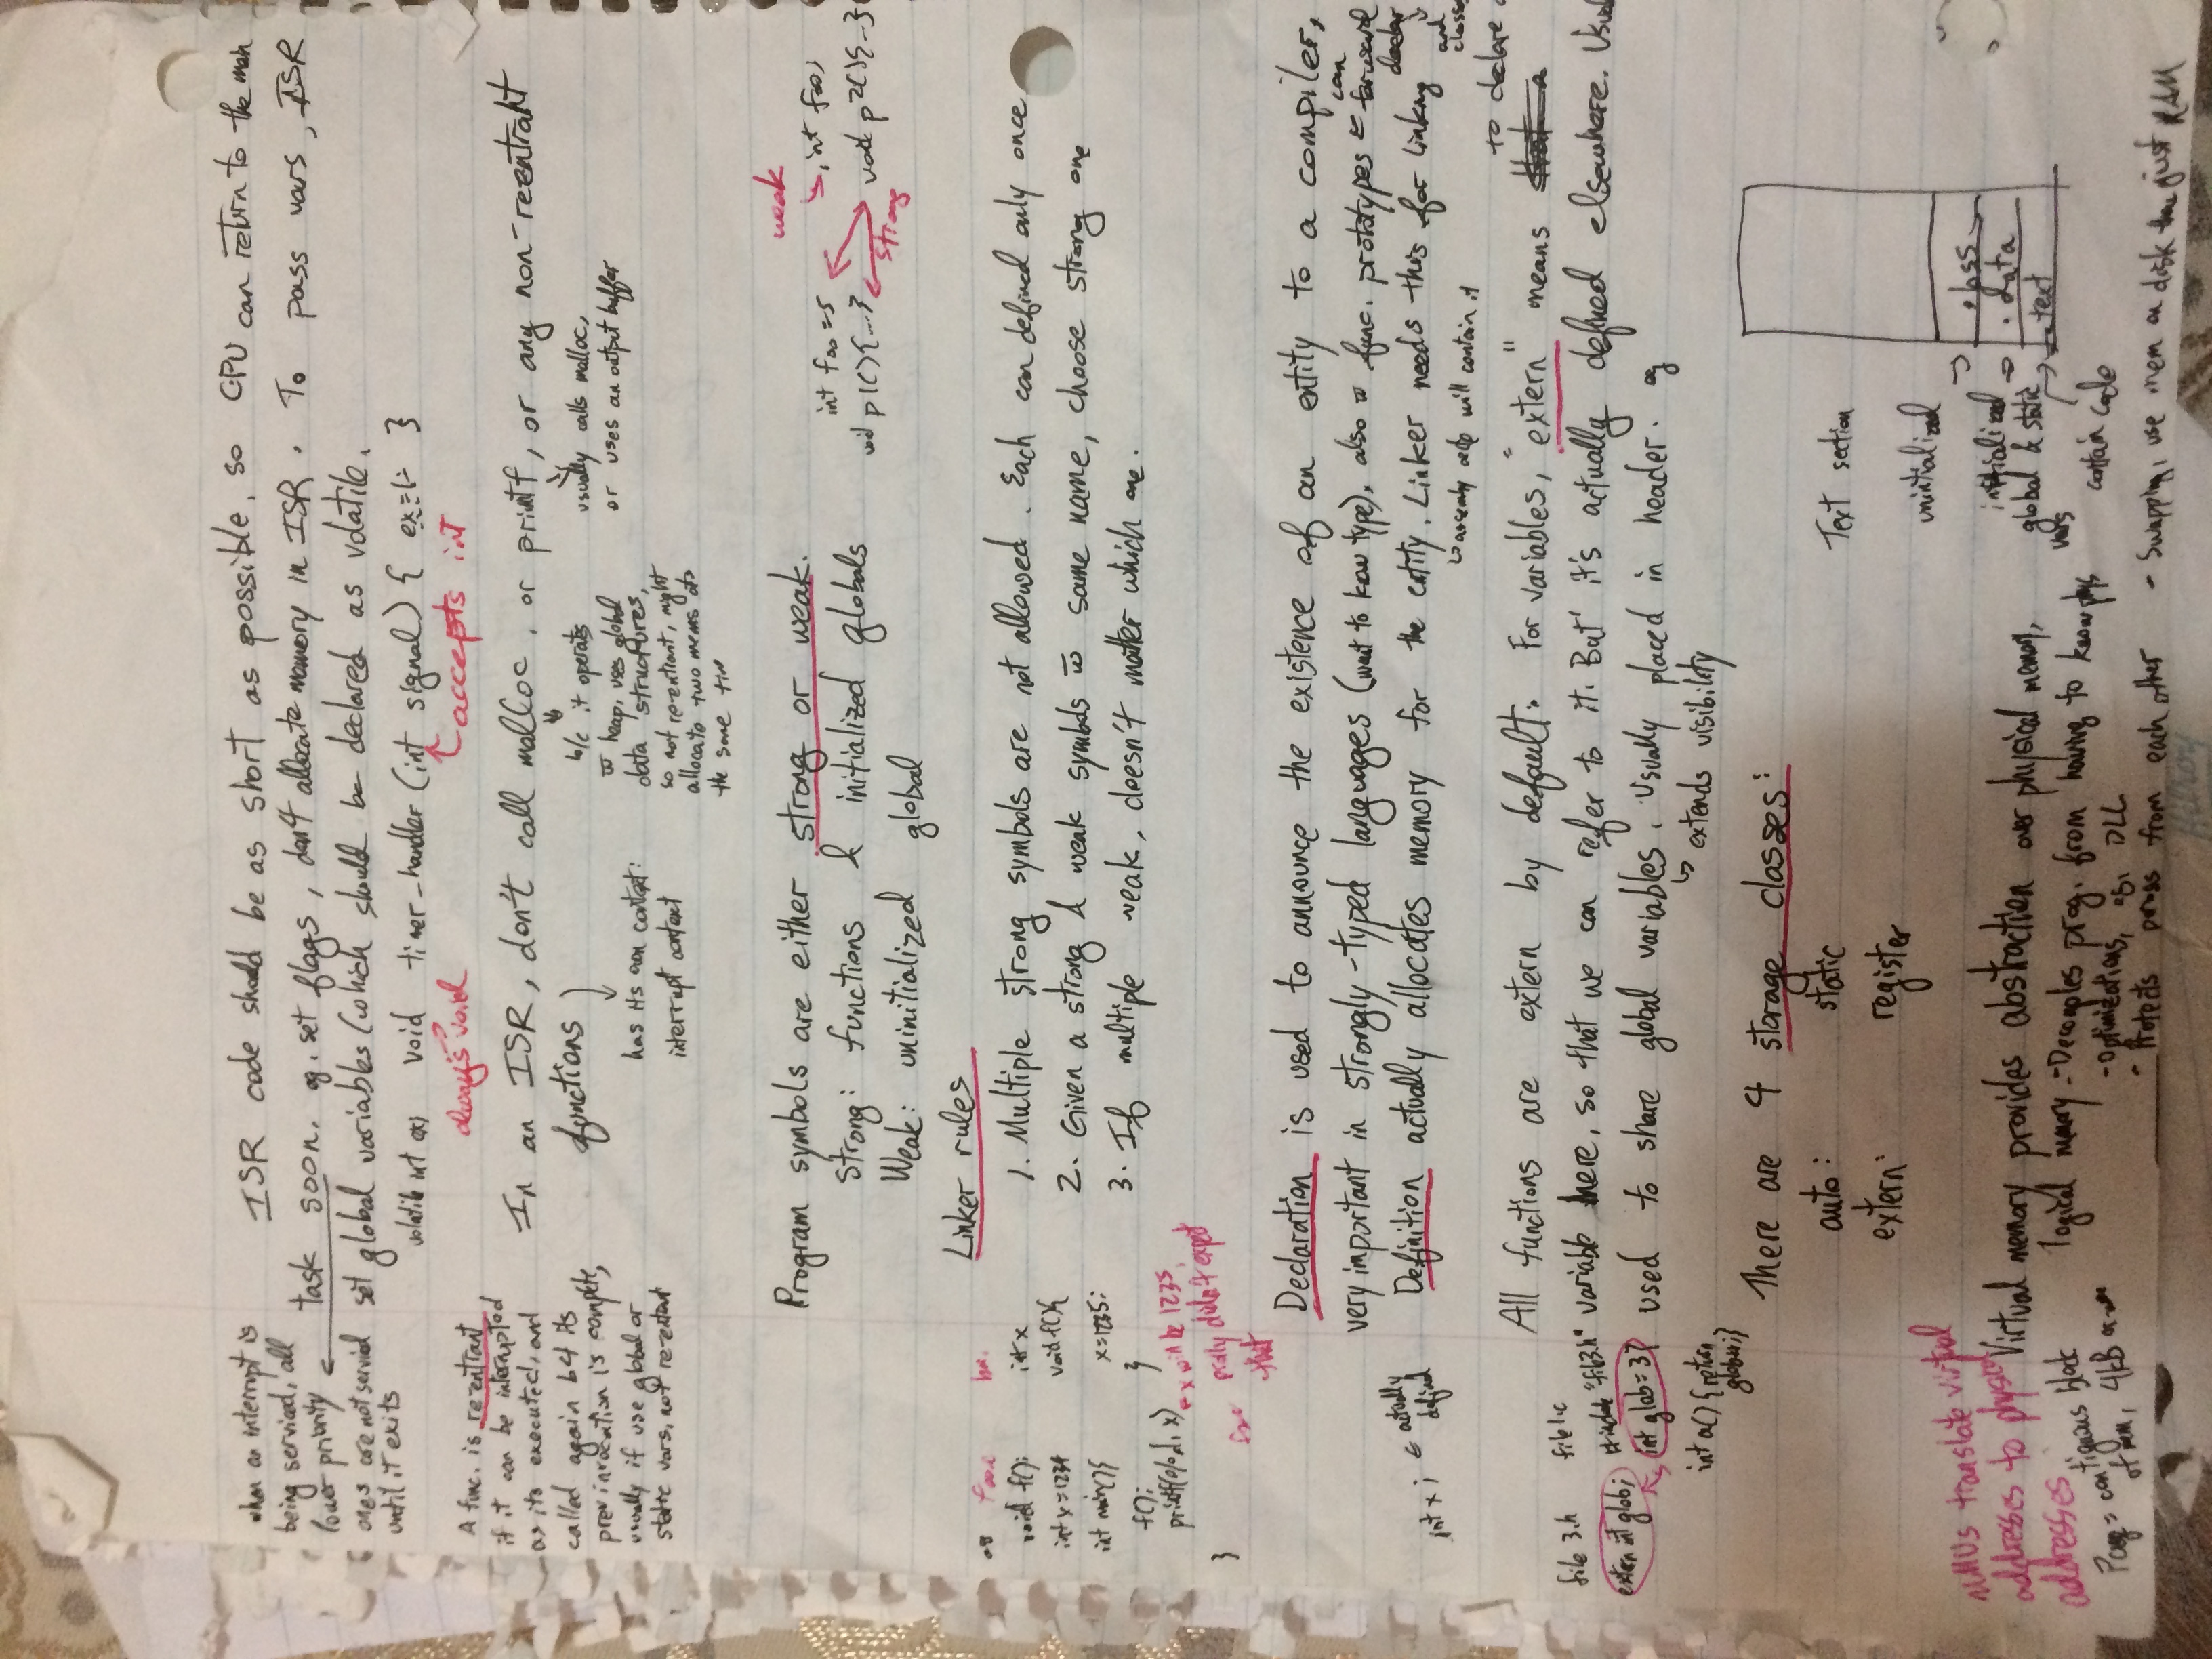 when an interrupt is
being serviced, all
lower priority
ones are not serviced
until it exits
ISR code should be as short as possible, so CPU can return to the main
task soon. eg. set flags, don't allocate memory in ISR. To pass vars, ISR
set global variables (which should be declared as volatile.
volatile int ex; void timer_handler (int signal) { }
always void
accepts int
A func. is re-entrant
if it can be interrupted
as its executed, and
called again b4 its
prev invocation is complete,
usually if use global or
static vars, not re-entrant
In an ISR, don't call malloc, or printf, or any non-reentrant
functions
has its own context:
interrupt context
b/c it operates
w heap, uses global
data structures,
so not re-entrant, might
allocate two mems at
the same time
usually calls malloc,
or uses an output buffer
Program symbols are either strong or weak.
Strong: functions & initialized globals
Weak: uninitialized global
weak
int foo = 5
int foo;
void p1(){...}
void p2(){...}
strong
Linker rules
1. Multiple strong symbols are not allowed. Each can defined only once
2. Given a strong & weak symbols w same name, choose strong one
3. If multiple weak, doesn't matter which one.
eg foo.c
void f();
int x = 1234
int main(){
f();
printf(%d, x)
}
int x
void f(){
x=1235;
}
x will be 1235,
prolly didn't expect
that
Declaration is used to announce the existence of an entity to a compiler,
very important in strongly-typed languages (want to know type), also w func. prototypes can forward
declar
and
class
int x; actually
defined
Definition actually allocates memory for the entity. Linker needs this for linking
assembly code will contain it
All functions are extern by default. For variables, "extern" means that a to declare
variable here, so that we can refer to it. But it's actually defined elsewhere.
used to share global variables. Usually placed in header. eg
extends visibility
file 3.h
extern int glob;
file1.c
#include "file3.h"
int glob = 3;
int a() {return
glob++;}
There are 4 storage classes:
auto: static
extern: register
Text section
unintialized
initialized
global & static
vars
contain code
.bss
.data
.text
MMUs translate virtual
addresses to physical
addresses
Page = contiguous block
of mem, 4kB
Virtual memory provides abstraction over physical memory,
logical memory - Decouples prog. from having to know phys
- Optimizations, eg. DLL
- Protects from each other
- Swapping, use mem on disk just RAM
Hilroy